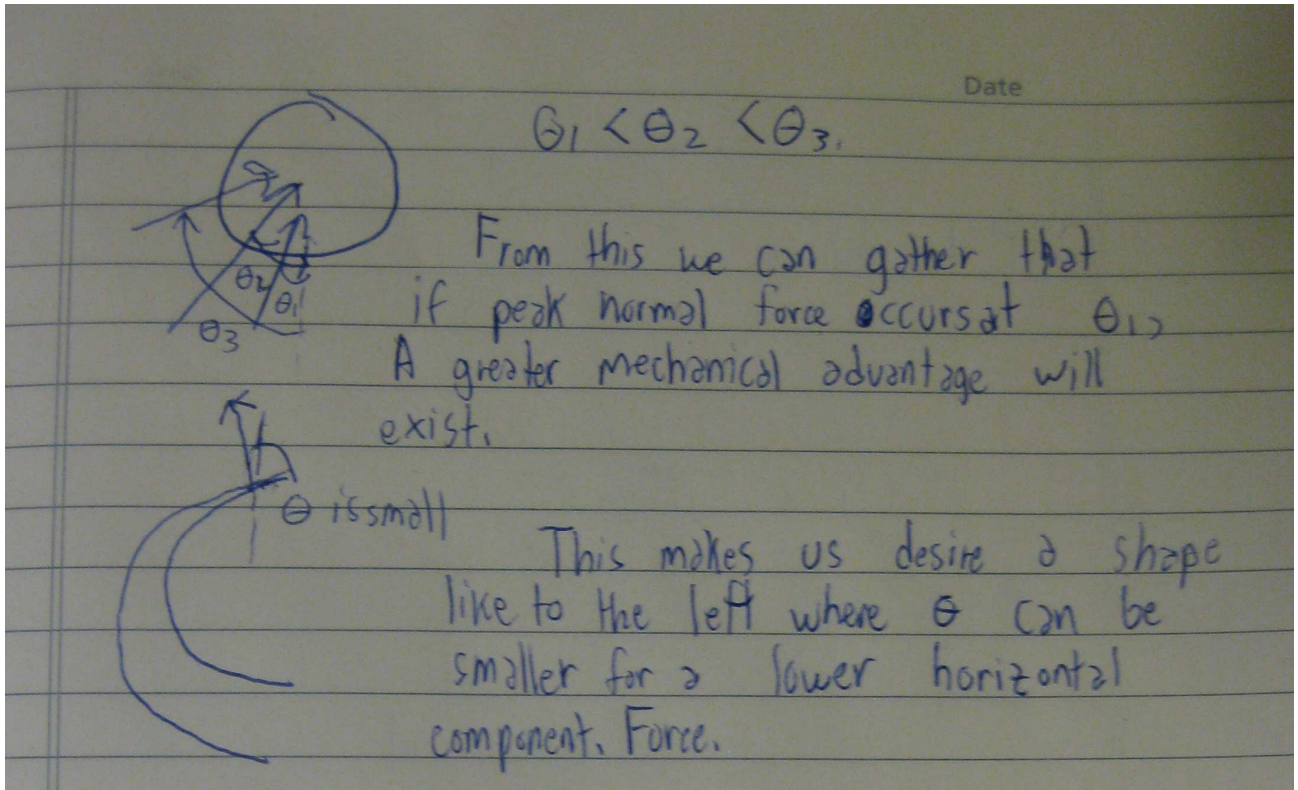 Date
θ1 < θ2 < θ3.
From this we can gather that
θ2
θ1
if peak normal force occurs at θ1,
θ3
A greater mechanical advantage will
exist.
θ is small
This makes us desire a shape
like to the left where θ can be
smaller for a lower horizontal
component. Force.